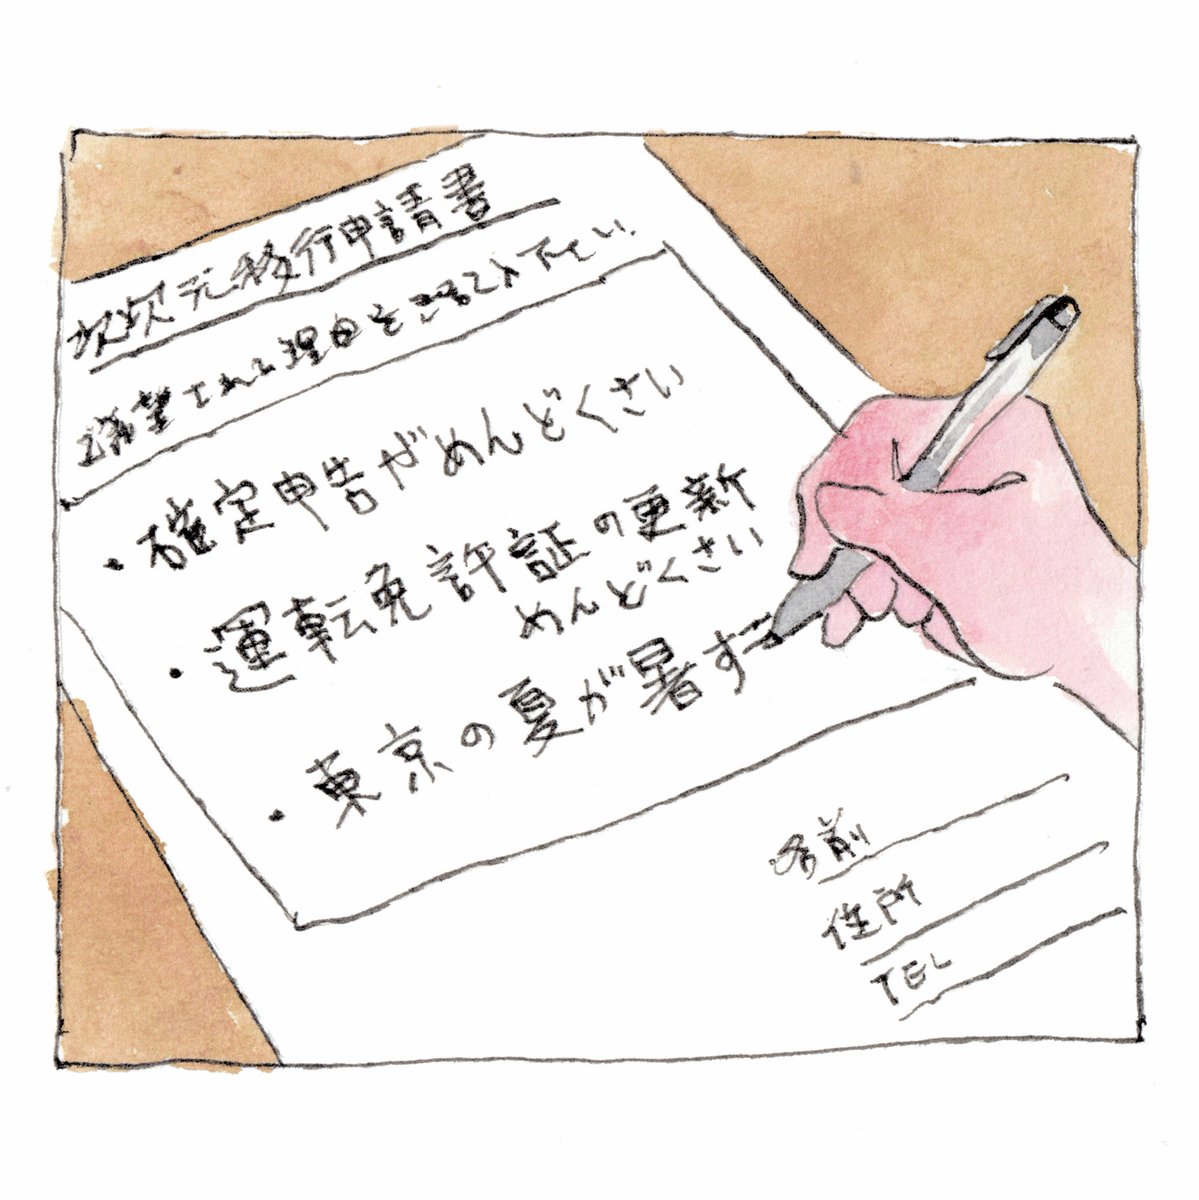 次次元移行申請書
ご希望される理由をご記入下さい
・確定申告がめんどくさい
・運転免許証の更新
めんどくさい
・東京の夏が暑す
名前
住所
TEL